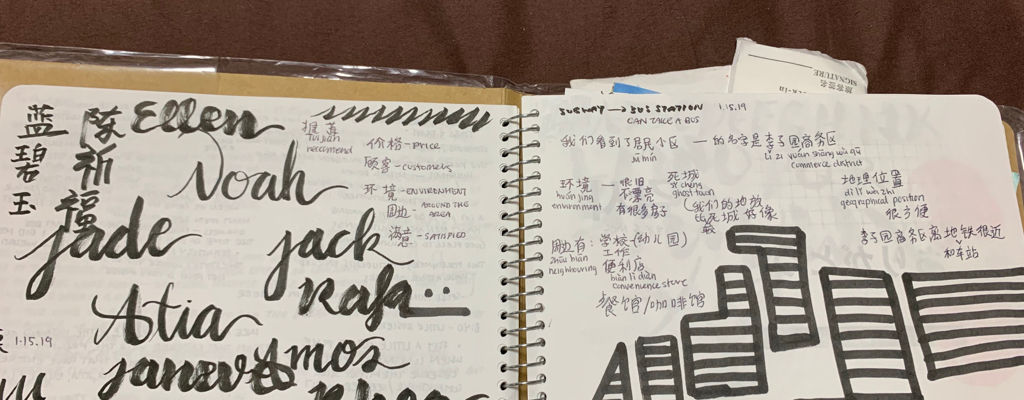 蓝
碧
玉
陈
祈
福
Ellen
Noah
jade
jack
Atia
Rafa..
Amos
1.15.19
推荐
tuijian
recommend
价格 - PRICE
顾客 - CUSTOMERS
环境 - ENVIRONMENT
周边 - AROUND THE AREA
满意 - SATISFIED
SUBWAY → BUS STATION 1.15.19
CAN TAKE A BUS
我们看到了居民小区 — 的名字是李子园商务区
jū mín
lǐ zi yuán shāng wù qū
commerce district
环境 — 很旧
huán jìng
environment
不漂亮
有很多房子
死城
sǐ chéng
ghost town
(我们的地放
比死城 好像
地理位置
dì lǐ wèi zhì
geographical position
很方便
李子园商务区离地铁很近
和车站
周边有: 学校 (幼儿园)
zhōu biān
neighbouring
工作
便利店
biàn lì diàn
convenience store
餐馆/咖啡馆
旅客签名
SIGNATURE